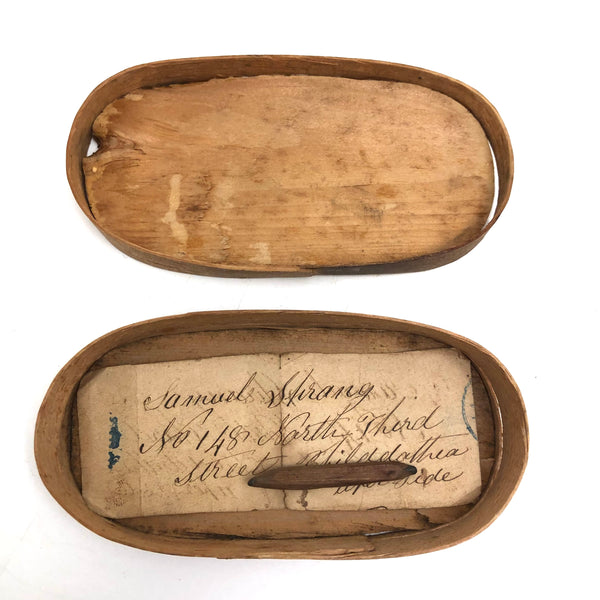 Samuel Strang
No 148 North Third
Street
side